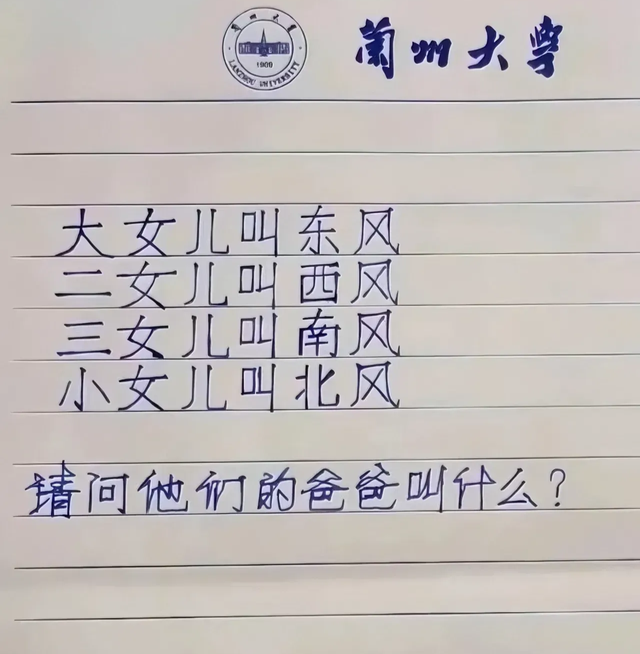 兰州大学
1909
LANZHOU UNIVERSITY
兰州大学
大女儿叫东风
二女儿叫西风
三女儿叫南风
小女儿叫北风
请问他们的爸爸叫什么?